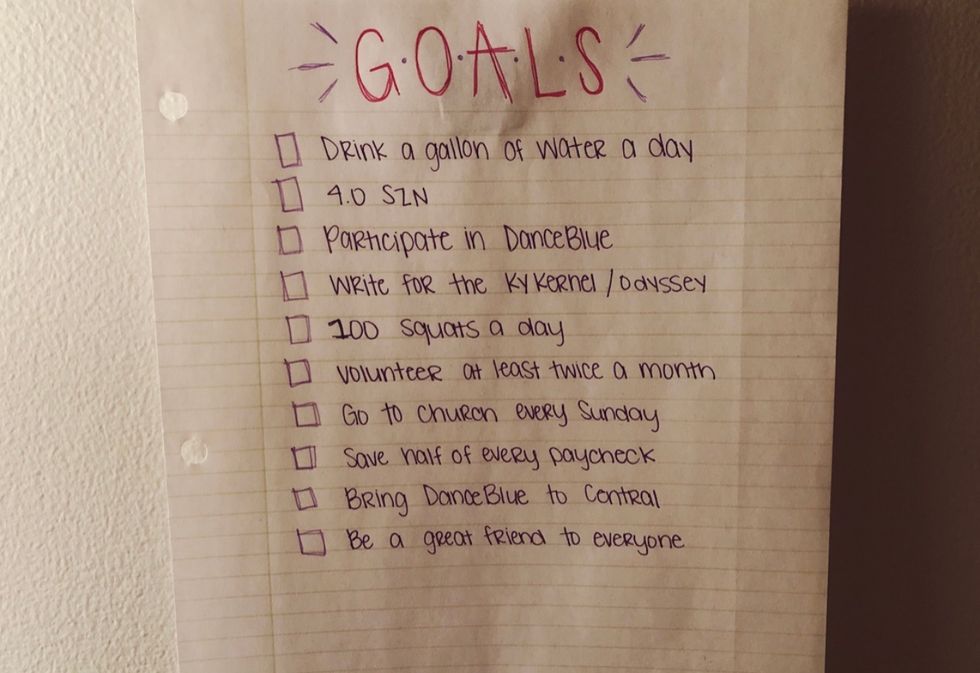 G·O·A·L·S
Drink a gallon of water a day
4.0 SZN
Participate in DanceBlue
Write for the KY Kernel/Odyssey
100 squats a day
Volunteer at least twice a month
Go to church every Sunday
Save half of every paycheck
Bring DanceBlue to Central
Be a great friend to everyone